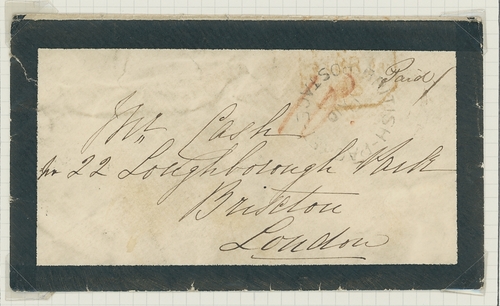 Paid
Mr. Cash
22 Loughborough Park
Brixton
London